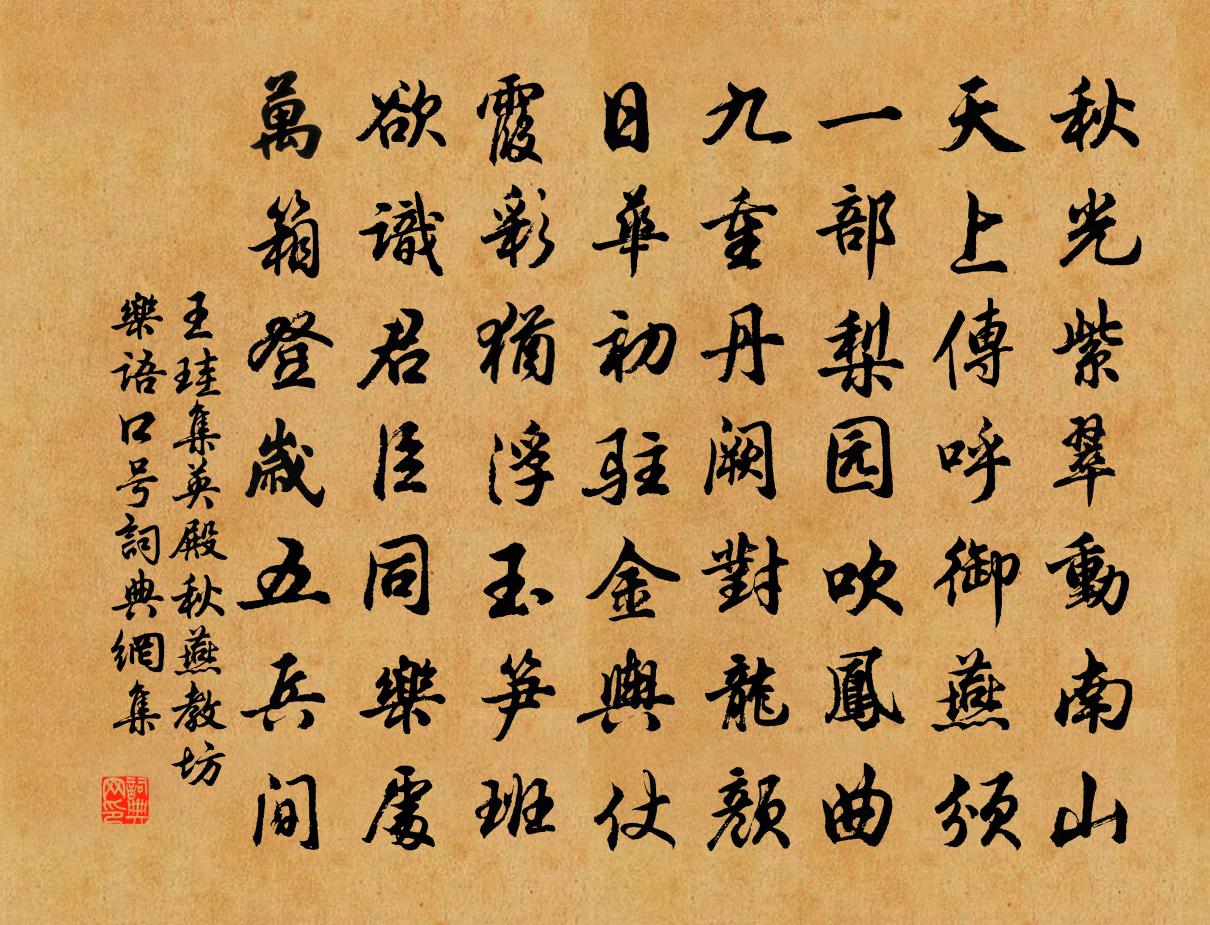 秋光紫翠動南山
天上傳呼御燕頒
一部梨园吹鳳曲
九重丹闕對龍顏
日華初駐金輿仗
霞彩猶浮玉笋班
欲識君臣同樂處
萬箱登歲五兵間
王珪集英殿秋燕教坊
樂语口号詞典網集
詞典网印